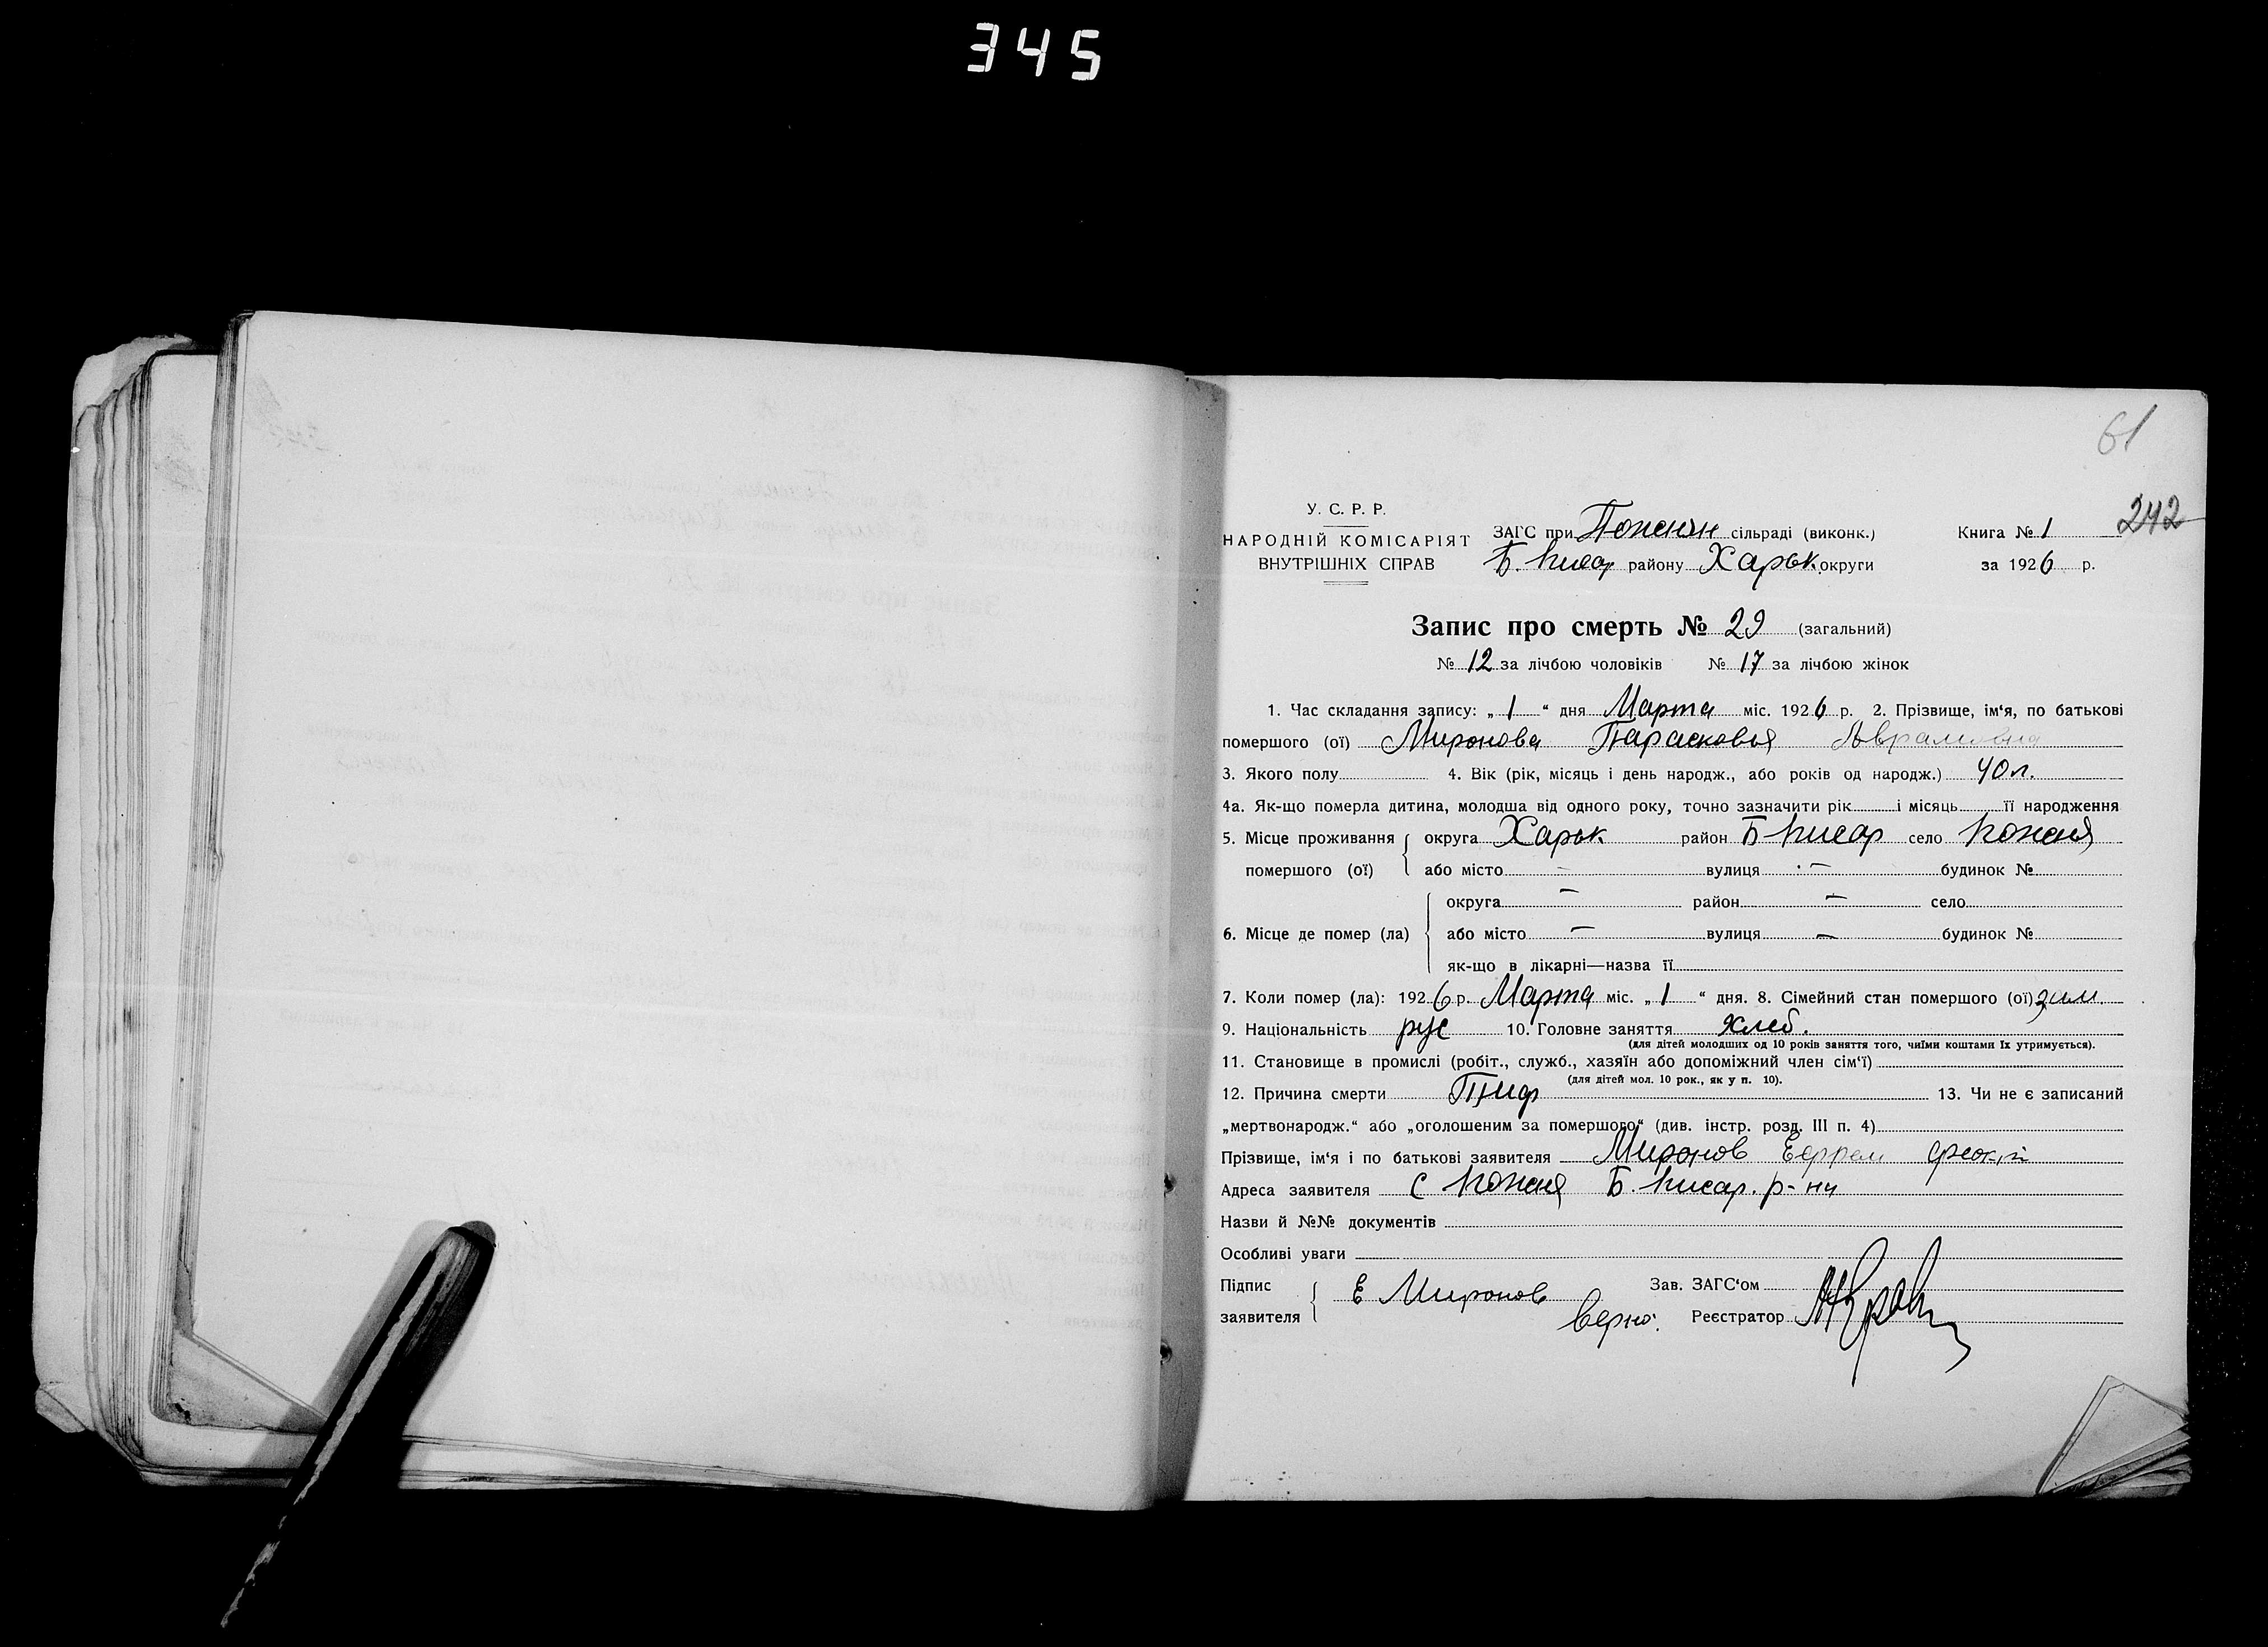 345
61
242
У. С. Р. Р.
НАРОДНІЙ КОМІСАРІЯТ
ВНУТРІШНІХ СПРАВ
ЗАГС при Пожнян сільраді (виконк.)
Б. Писар району Харьк округи
Книга № 1
за 1926 р.
Запис про смерть № 29 (загальний)
№ 12 за лічбою чоловіків № 17 за лічбою жінок
1. Час складання запису: „ 1 “ дня Марта міс. 1926 р. 2. Прізвище, ім‘я, по батькові
помершого (ої) Миронова Парасковья Аврамовна
3. Якого полу 4. Вік (рік, місяць і день народж., або років од народж.) 40 л.
4а. Як-що померла дитина, молодша від одного року, точно зазначити рік і місяць її народження
5. Місце проживання округа Харьк район Б Писар село Пожня
помершого (ої) або місто — вулиця — будинок №
округа — район — село
6. Місце де помер (ла) або місто — вулиця — будинок №
як-що в лікарні—назва її
7. Коли помер (ла): 1926 р. Марта міс. „ 1 “ дня. 8. Сімейний стан помершого (ої) зам.
9. Національність рус 10. Головне заняття хлеб.
(для дітей молодших од 10 років заняття того, чиїми коштами їх утримується).
11. Становище в промислі (робіт., служб., хазяїн або допоміжний член сім‘ї)
(для дітей мол. 10 рок., як у п. 10).
12. Причина смерти Тиф 13. Чи не є записаний
„мертвонародж.“ або „оголошеним за помершого“ (див. інстр. розд. III п. 4)
Прізвище, ім‘я і по батькові заявителя Миронов Ефрем
Адреса заявителя С Пожня Б. Писар. р-на
Назви й №№ документів
Особливі уваги
Підпис
заявителя
Е Миронов
Верно:
Зав. ЗАГС‘ом
Реєстратор